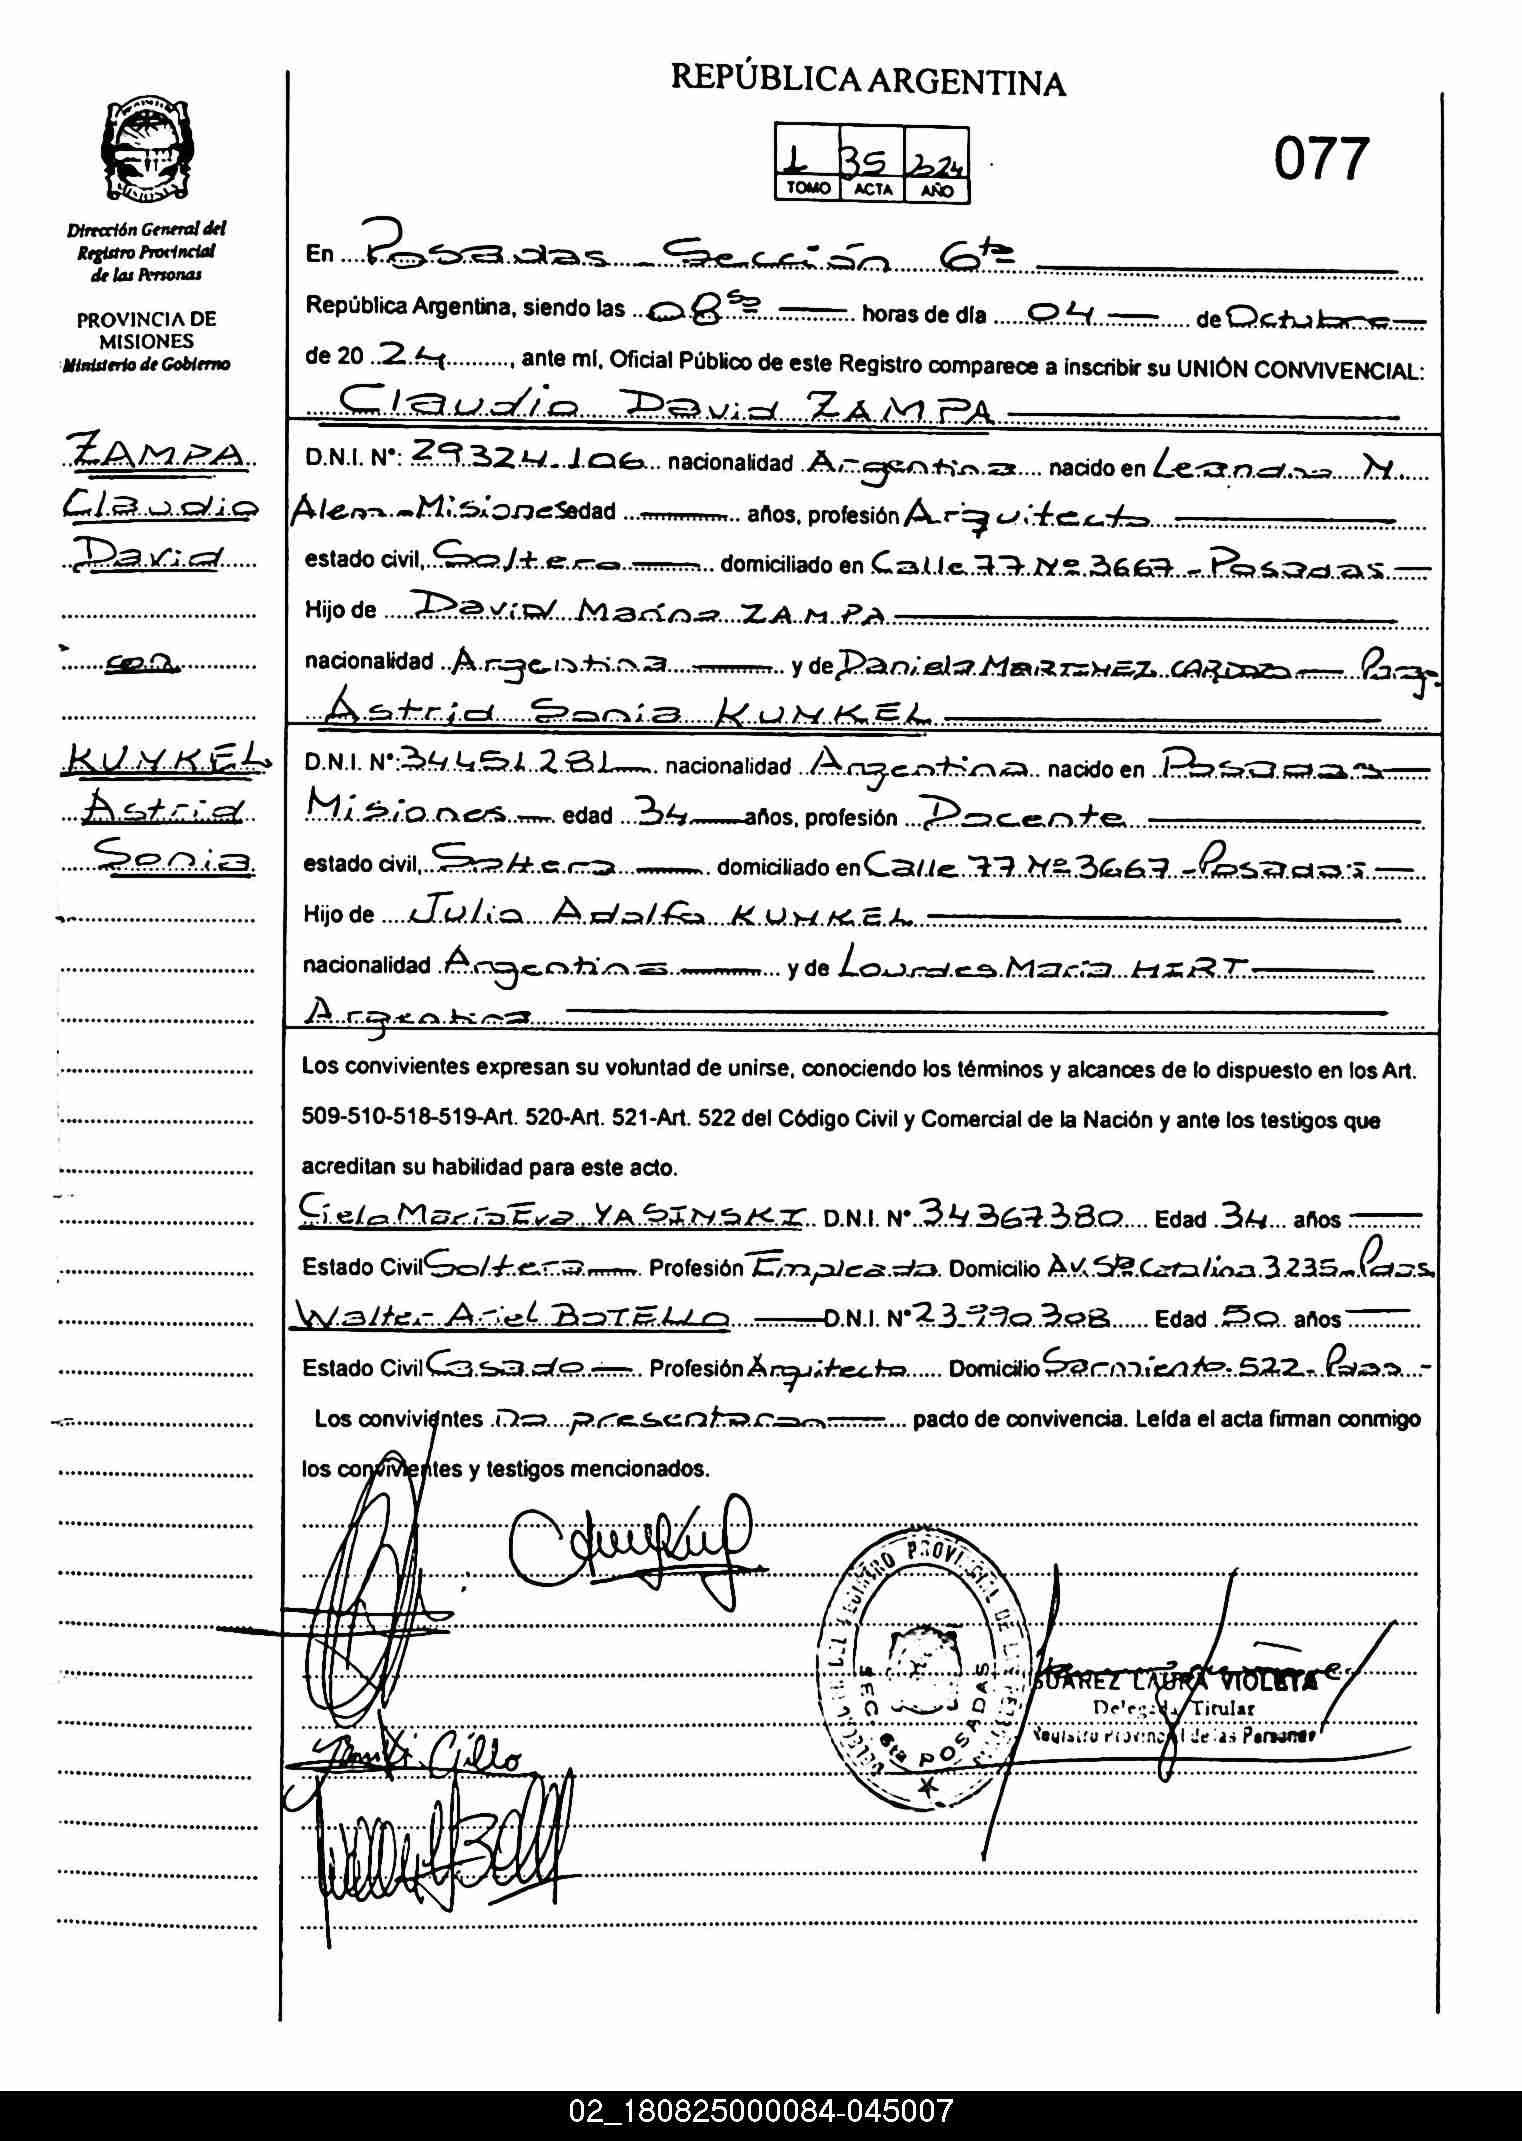 REPÚBLICA ARGENTINA
1 35
TOMO ACTA AÑO
077
MISIONES
Dirección General del
Registro Provincial
de las Personas
PROVINCIA DE
MISIONES
Ministerio de Gobierno
ZAMPA
Claudio
David
con
KUNKEL
Astrid
Sonia
En Posadas - Sección 6ta
República Argentina, siendo las 08 horas de día 04 de Octubre
de 2024, ante mí, Oficial Público de este Registro comparece a inscribir su UNIÓN CONVIVENCIAL:
Claudio David ZAMPA
D.N.I. N°: 29.324.106 nacionalidad Argentina nacido en Leandro N.
Alem - Misiones edad años, profesión Arquitecto
estado civil, Soltero domiciliado en Calle 77 Nº 3667 - Posadas
Hijo de David Marino ZAMPA
nacionalidad Argentina y de Daniela MARTINEZ CARDOZO
Astrid Sonia KUNKEL
D.N.I. N°: 34451281 nacionalidad Argentina nacido en Posadas
Misiones edad 34 años, profesión Docente
estado civil, Soltera domiciliado en Calle 77 Nº 3667 - Posadas
Hijo de Julio Adolfo KUNKEL
nacionalidad Argentina y de Lourdes María HIRT
Argentina
Los convivientes expresan su voluntad de unirse, conociendo los términos y alcances de lo dispuesto en los Art.
509-510-518-519-Art. 520-Art. 521-Art. 522 del Código Civil y Comercial de la Nación y ante los testigos que
acreditan su habilidad para este acto.
Cielo María Eva YASINSKI D.N.I. N° 34367380 Edad 34 años
Estado Civil Soltera Profesión Empleada Domicilio Av. Sta Catalina 3235 - Pdas
Walter Ariel BOTELLO D.N.I. N° 23.990.308 Edad 50 años
Estado Civil Casado Profesión Arquitecto Domicilio Sarmiento 522 - Pdas -
Los convivientes no presentaron pacto de convivencia. Leída el acta firman conmigo
los convivientes y testigos mencionados.
REGISTRO PROVINCIAL DE LAS
SEC. 6ta POSADAS
SUAREZ LAURA VIOLETA
Delegada Titular
Registro Provincial de las Personas
02_180825000084-045007